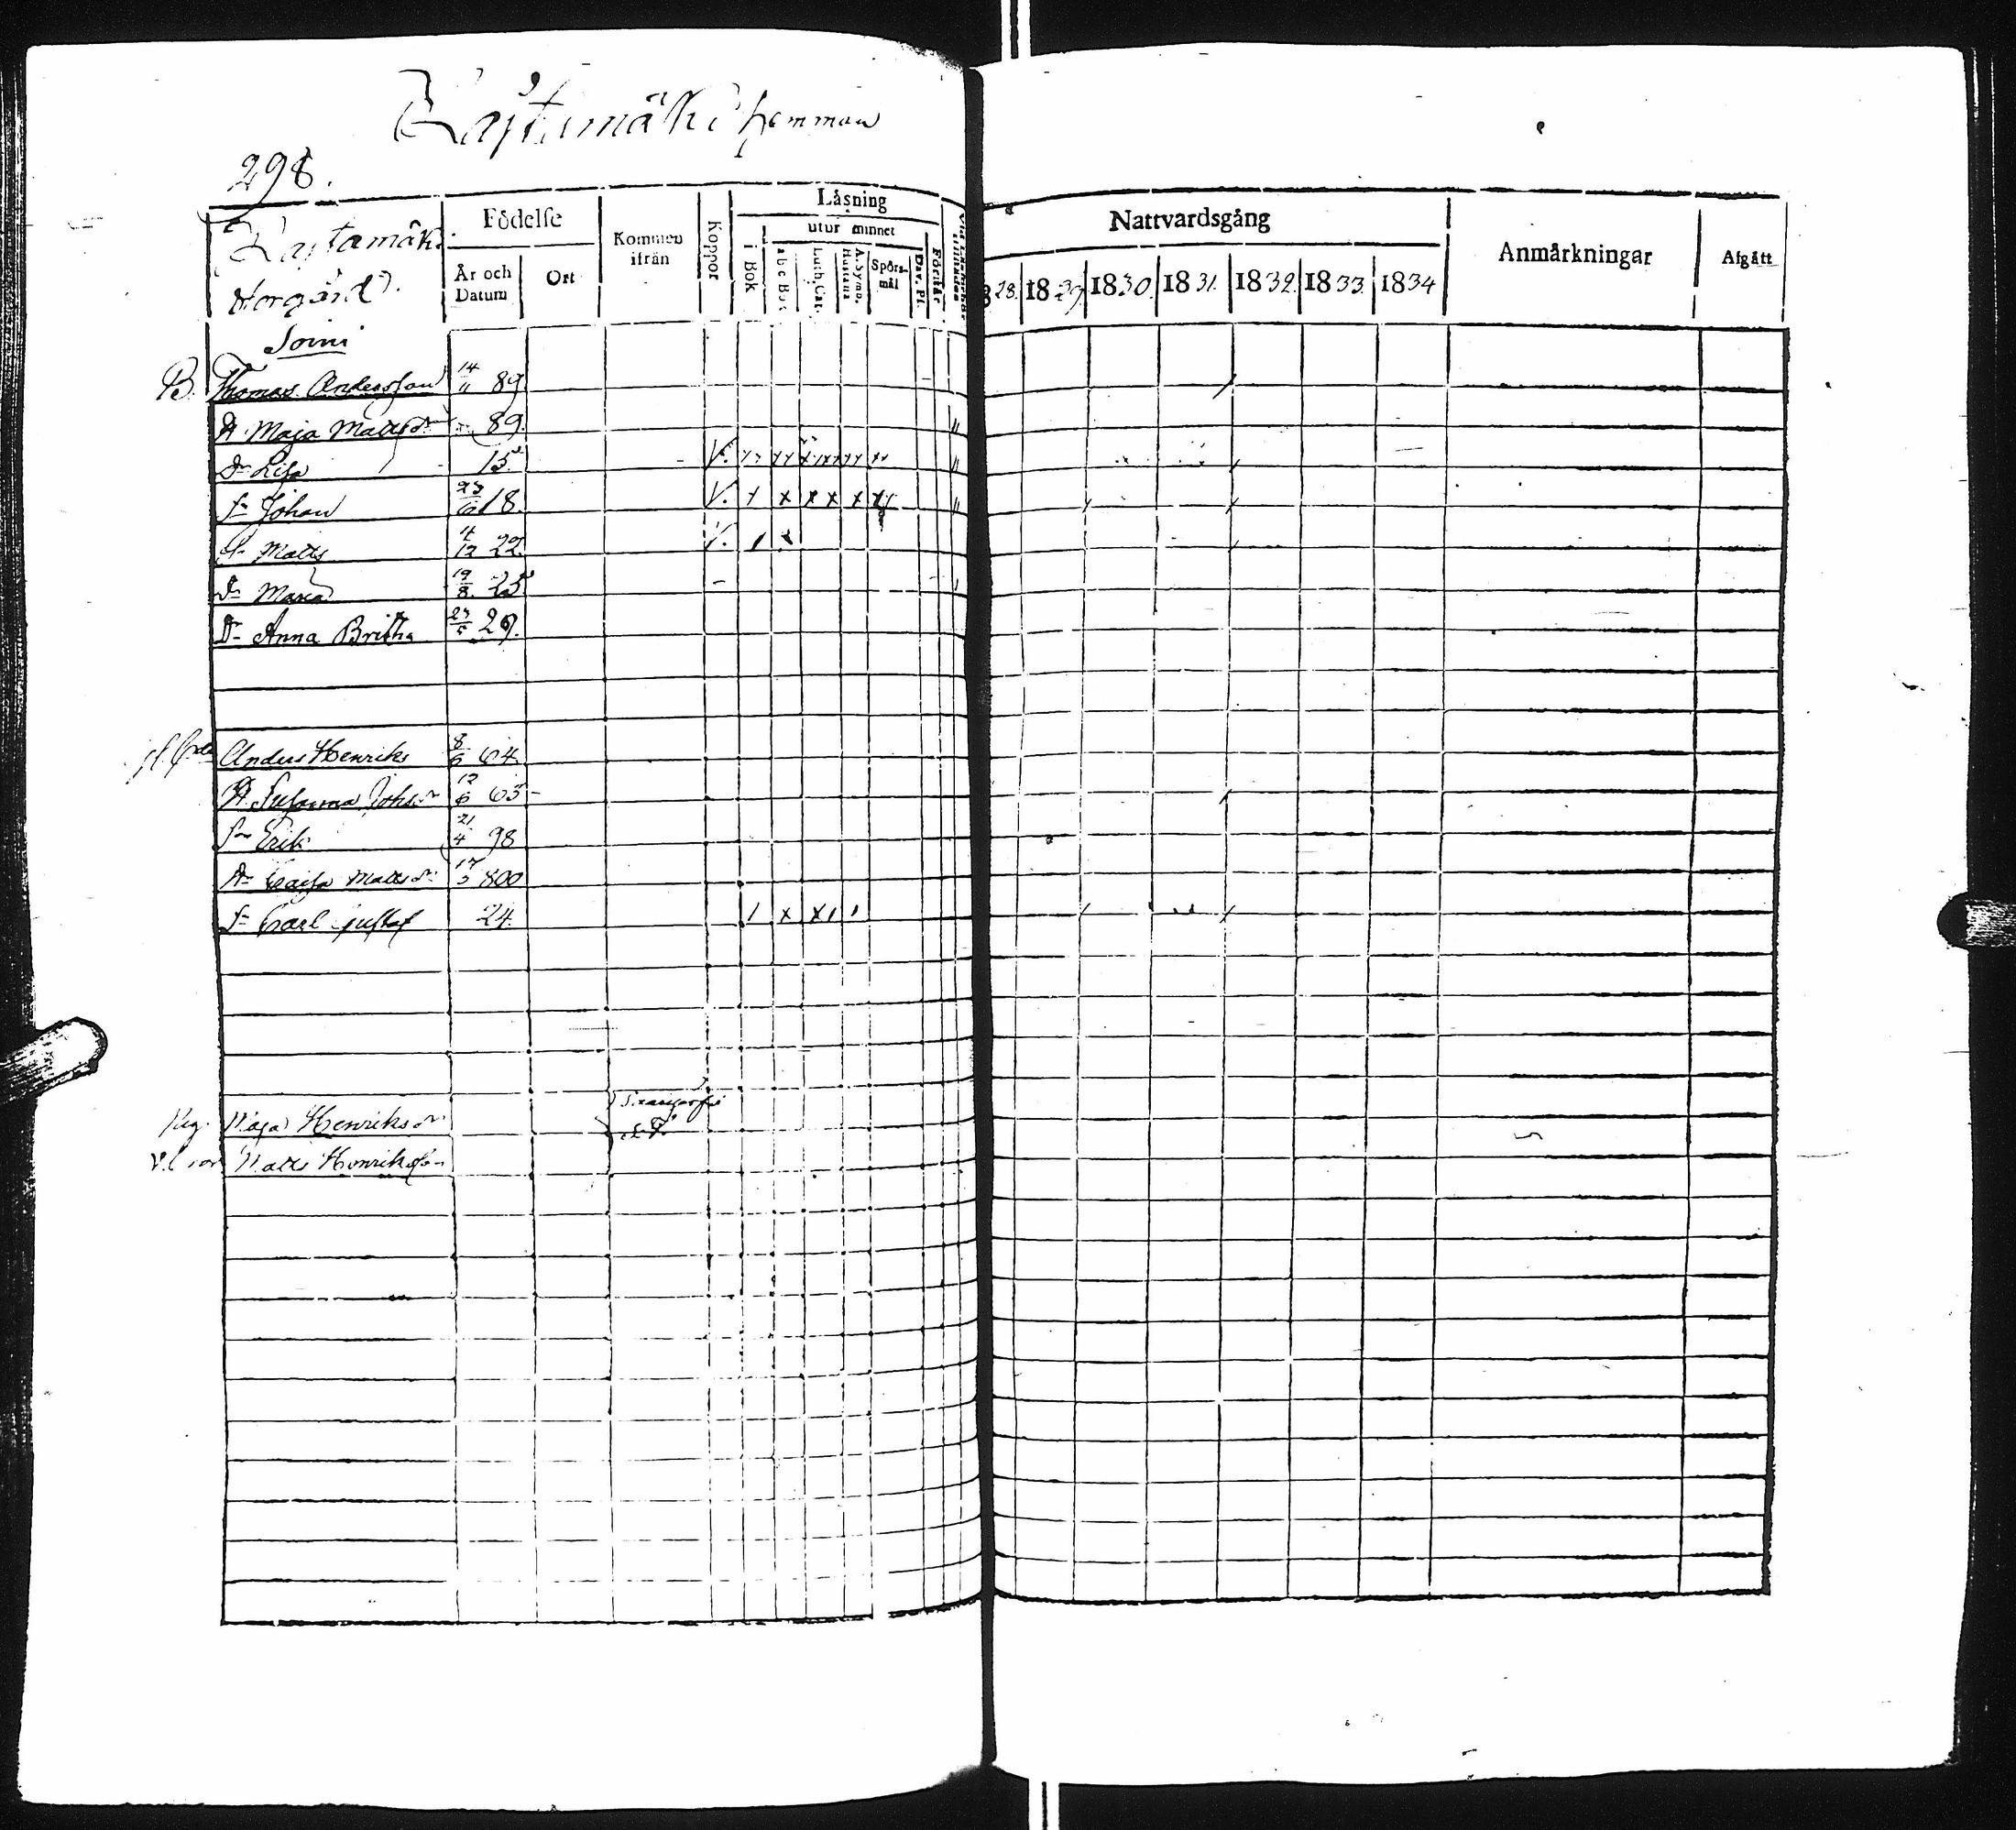 Rajtamäki hemman
298.
Rajtamäki
Norgård.
Soini
Födelse
År och Datum
Ort
Kommen ifrån
Koppor
Låsning
i Bok
utur minnet
a b c Bok
Luth. Cat.
A. Symb. Hustafla
Spörsmål
Dav. Ps.
Förhår
Nattvardsgång
28. 1829. 1830. 1831. 1832. 1833. 1834
Anmärkningar
Afgått
B. Thomas Andersson 14/11 89
H. Maja Mattsdr 89.
Dr Lisa 15 V.
Sn Johan 18. V. x x x x x
Sn Matts 4/12 22. V.
Dr Maria 19/8. 25
Dr Anna Britha 29.
Anders Henriks 8/6 64
H. Susanna Johsdr 12/6 63
Sn Erik 21/4 98
Hu Caisa Mattsdr 800
Sn Carl Gustaf 24.
Pig. Maja Henriksdr
Matts Henriksson